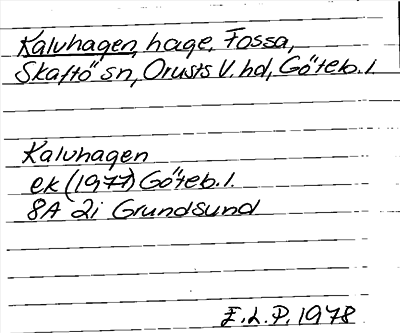 Kalvhagen, hage, Fossa,
Skaftö sn, Orusts V. hd, Göteb. l.
Kalvhagen
ek (1977) Göteb. l.
8A 2i Grundsund
E.L.P. 1978